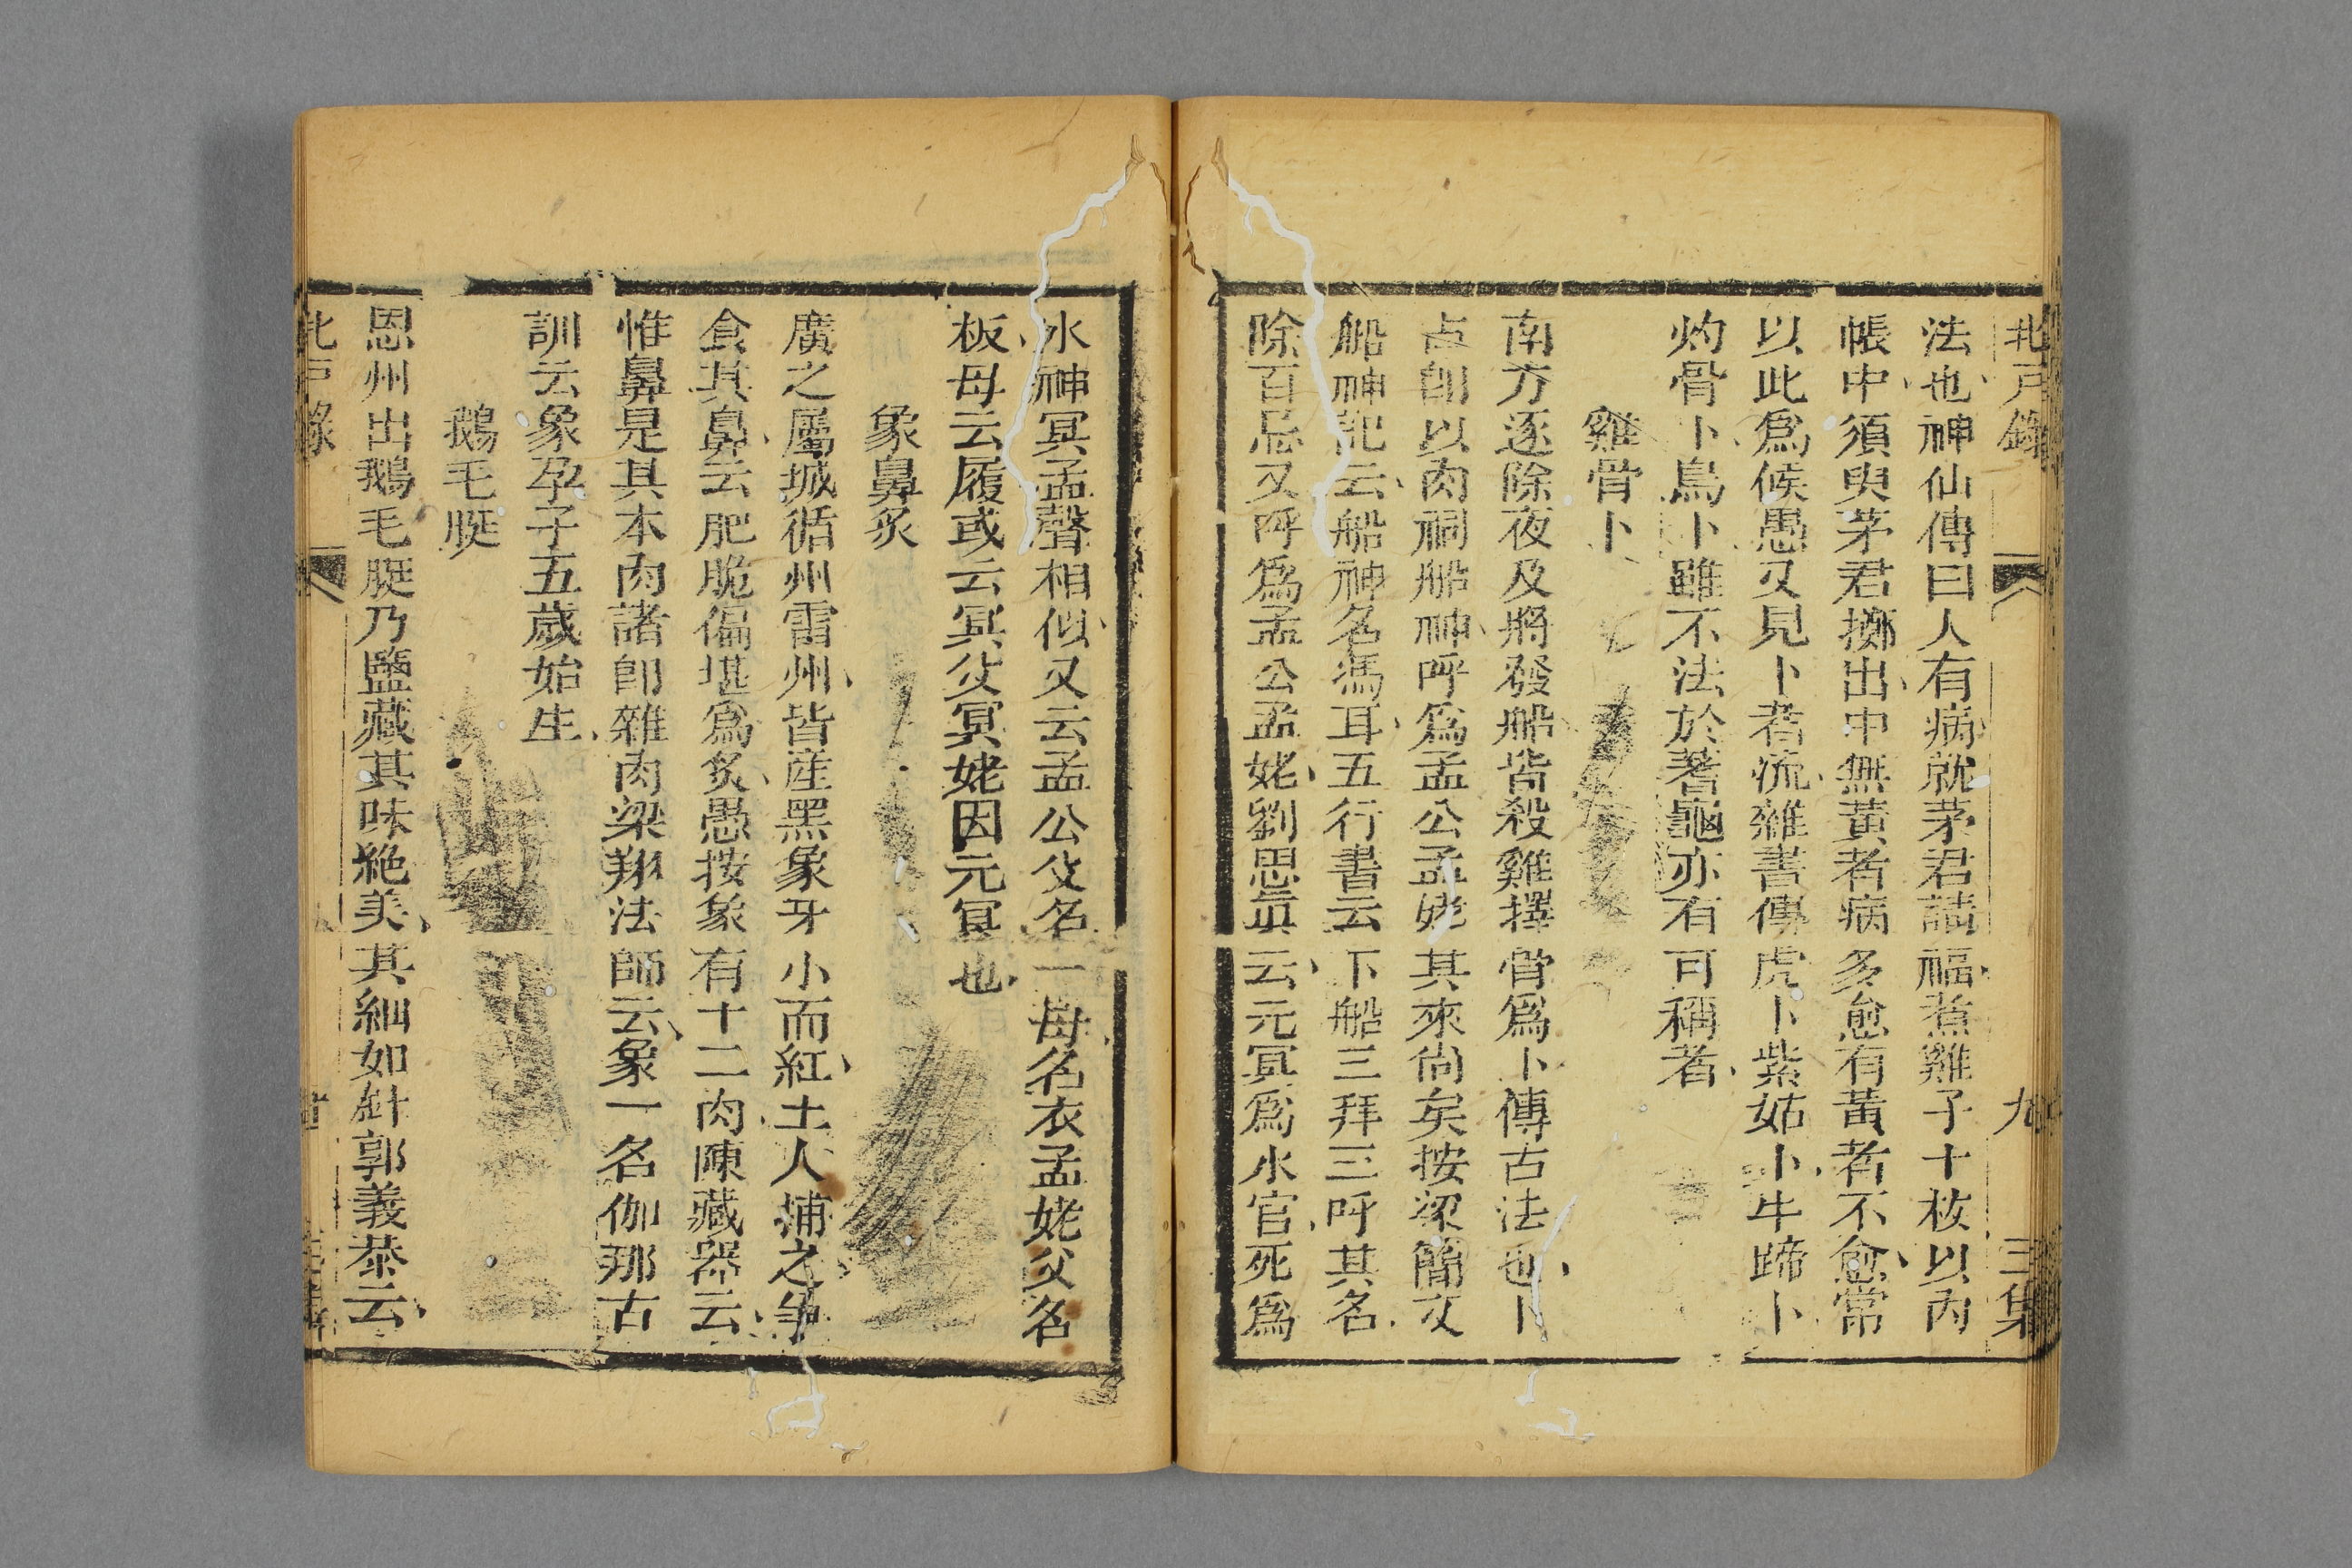 北戸錄 九 三集
法也神仙傳曰人有病就茅君請福煮雞子十枚以內
帳中須臾茅君擲出中無黃者病多愈有黃者不愈常
以此爲候愚又見卜者流雜書傳虎卜紫姑卜牛蹄卜
灼骨卜鳥卜雖不法於蓍龜亦有可稱者
雞骨卜
南方逐除夜及將發船皆殺雞擇骨爲卜傳古法也卜
占卽以肉祠船神呼爲孟公孟姥其來尚矣按梁簡文
船神記云船神名馮耳五行書云下船三拜三呼其名
除百忌又呼爲孟公孟姥劉思眞云元冥爲水官死爲
水神冥孟聲相似又云孟公父名一母名衣孟姥父名
板母云履或云冥父冥姥因元冥也
象鼻炙
廣之屬城循州雷州皆産黑象牙小而紅土人捕之爭
食其鼻云肥脆偏堪爲炙愚按象有十二肉陳藏器云
惟鼻是其本肉諸卽雜肉梁翔法師云象一名伽那古
訓云象孕子五歲始生
鵝毛脡
恩州出鵝毛脡乃鹽藏其味絶美其細如針郭義恭云
北戸錄